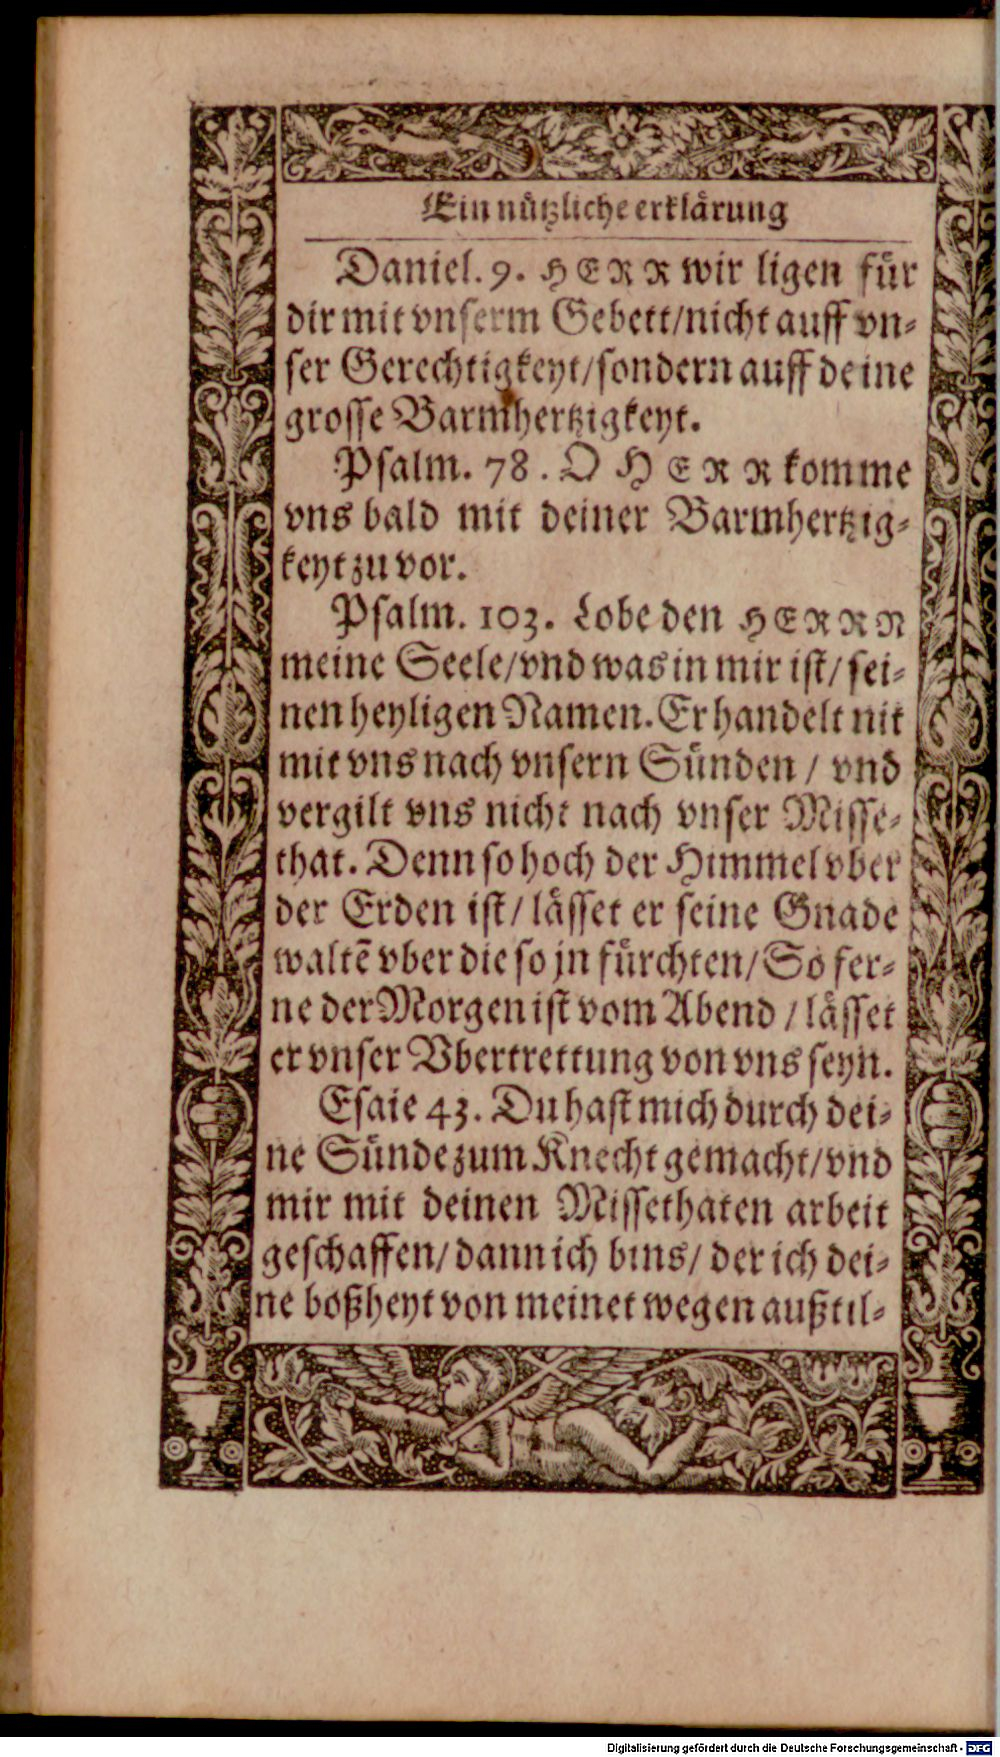 Ein nützliche erklärung
Daniel. 9. HERR wir ligen für
dir mit vnserm Gebett/nicht auff vn-
ser Gerechtigkeyt/sondern auff deine
grosse Barmhertzigkeyt.
Psalm. 78. O HERR komme
vns bald mit deiner Barmhertzig-
keyt zu vor.
Psalm. 103. Lobe den HERRN
meine Seele/vnd was in mir ist/sei-
nen heyligen Namen. Er handelt nit
mit vns nach vnsern Sünden/vnd
vergilt vns nicht nach vnser Misse-
that. Denn so hoch der Himmel vber
der Erden ist/lässet er seine Gnade
waltē vber die so jn fürchten/So fer-
ne der Morgen ist vom Abend/lässet
er vnser Vbertrettung von vns seyn.
Esaie 43. Du hast mich durch dei-
ne Sünde zum Knecht gemacht/vnd
mir mit deinen Missethaten arbeit
geschaffen/dann ich bins/der ich dei-
ne boßheyt von meinet wegen außtil-
Digitalisierung gefördert durch die Deutsche Forschungsgemeinschaft - DFG